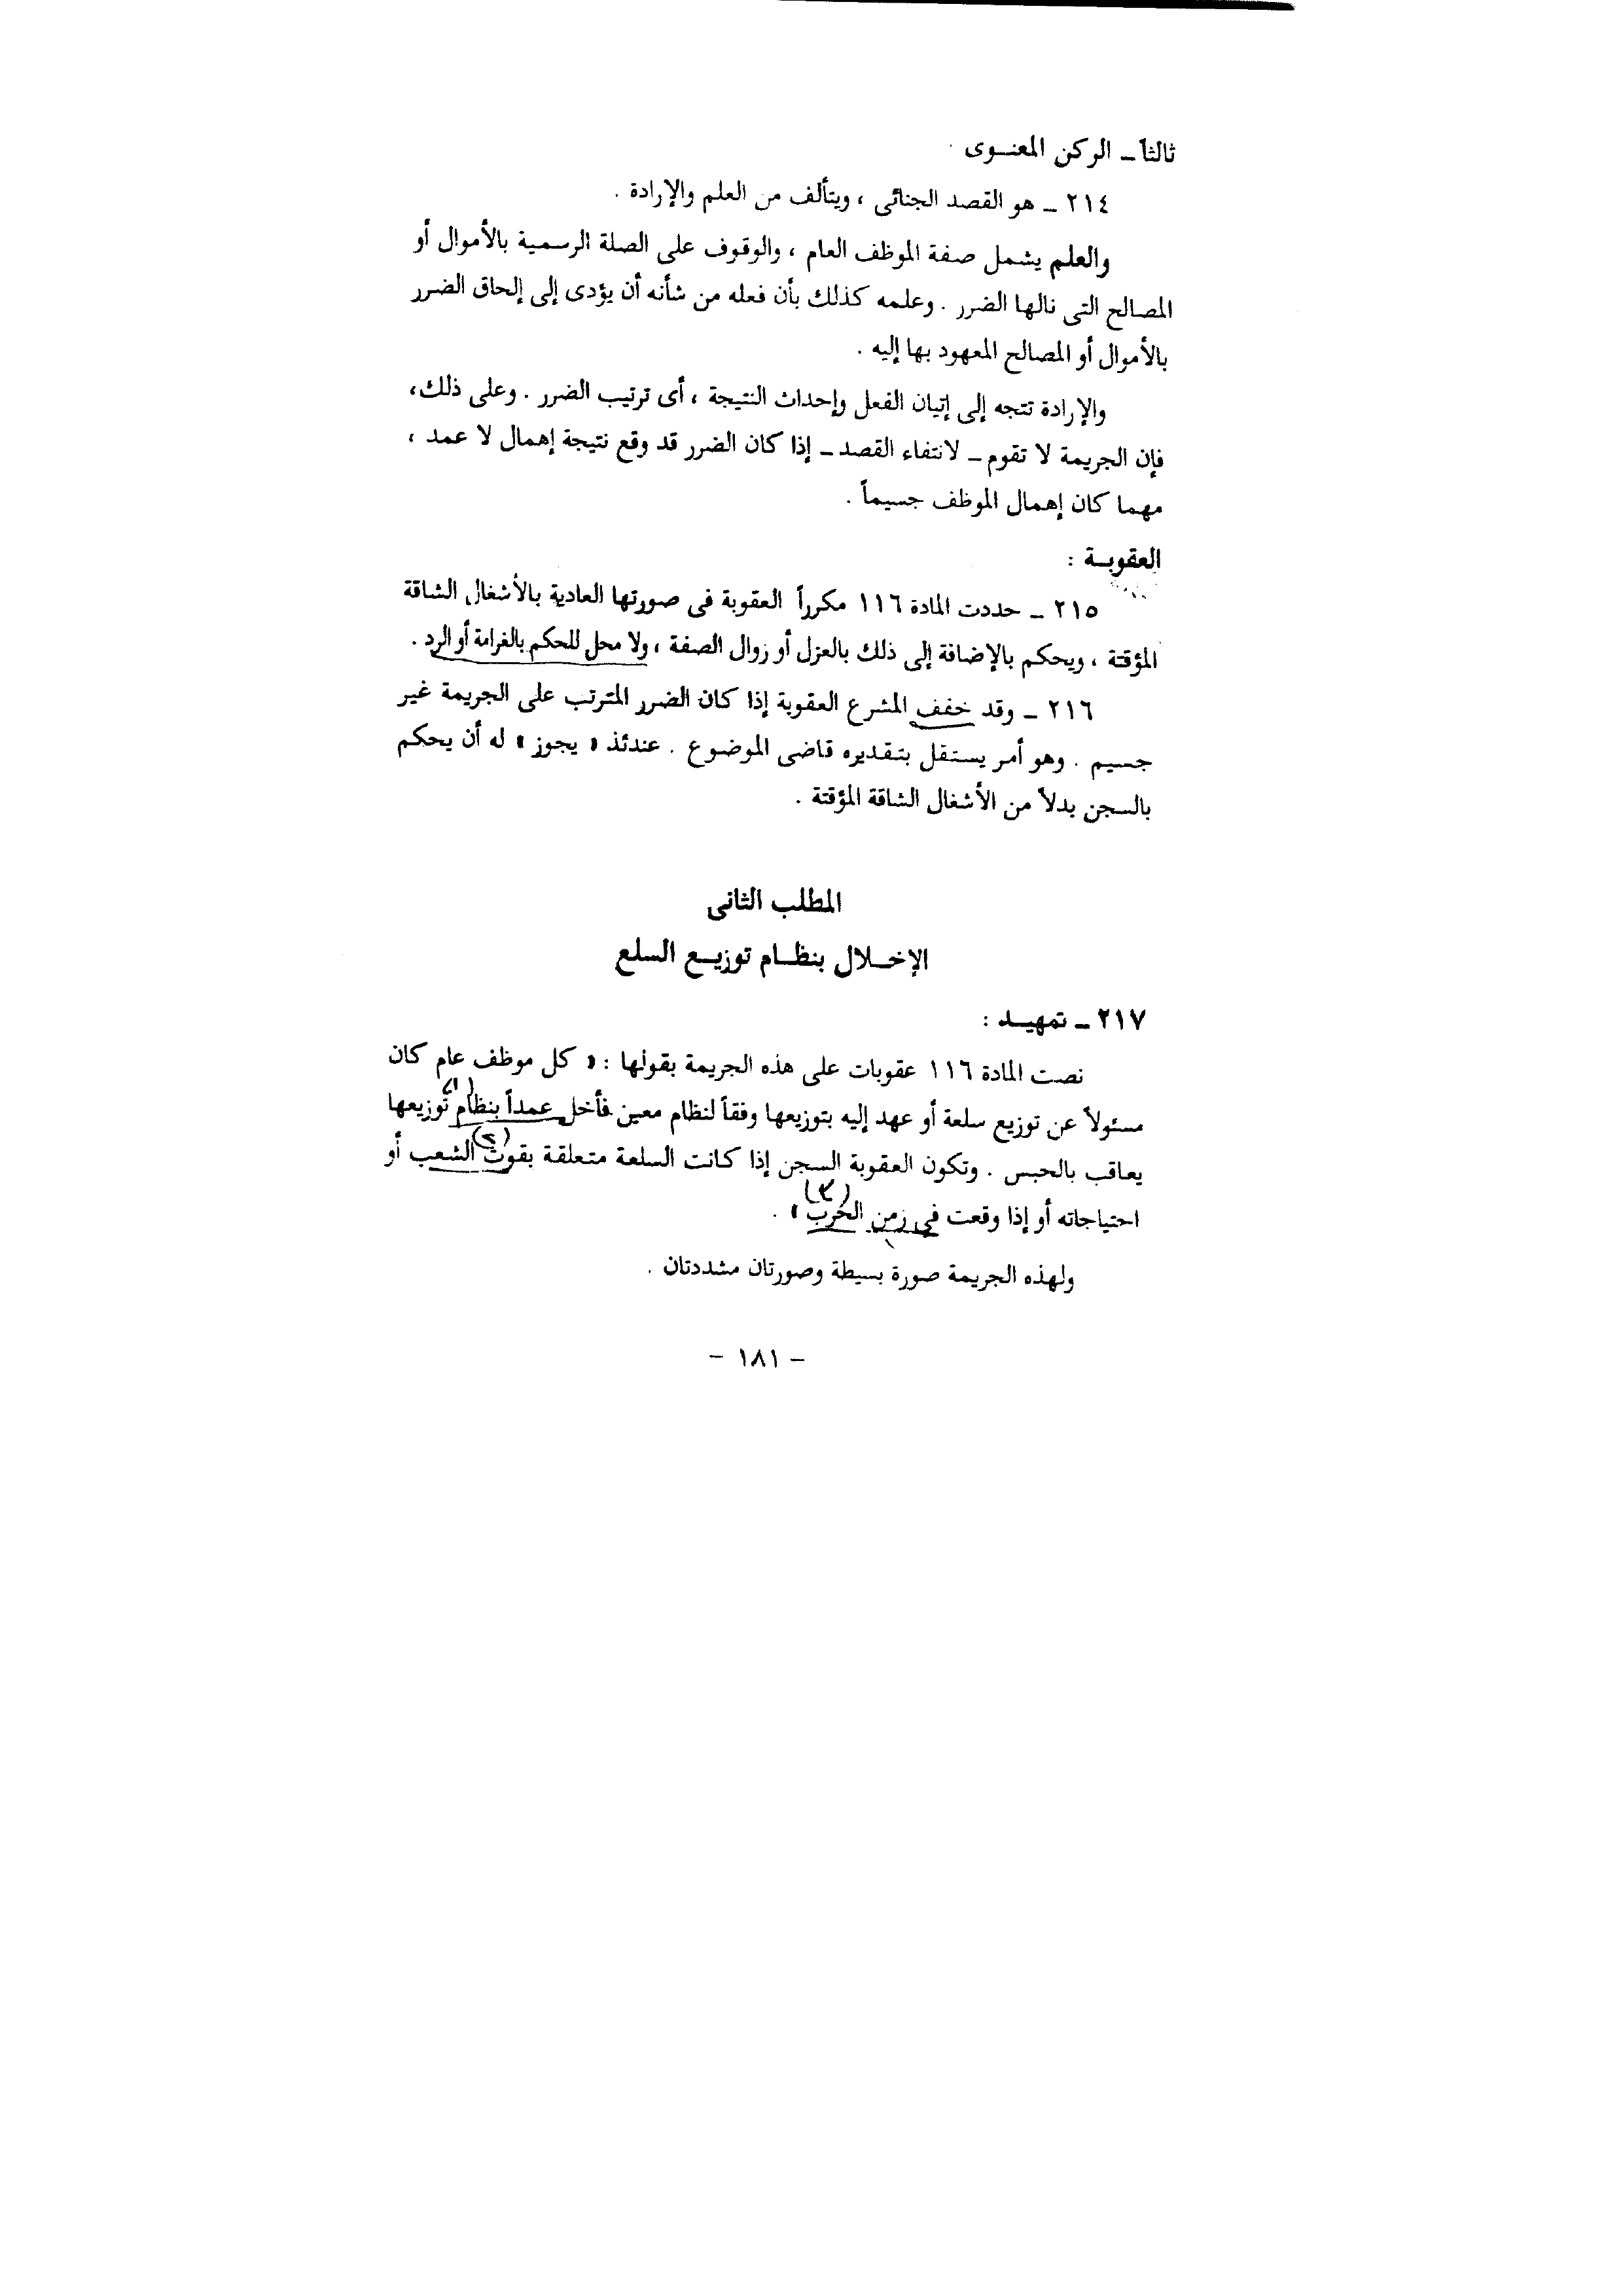 ثالثاً ــ الركن المعنــوى
٢١٤ ــ هو القصد الجنائى ، ويتألف من العلم والإرادة .
والعلم يشمل صفة الموظف العام ، والوقوف على الصلة الرسمية بالأموال أو
المصالح التى نالها الضرر . وعلمه كذلك بأن فعله من شأنه أن يؤدى إلى إلحاق الضرر
بالأموال أو المصالح المعهود بها إليه .
والإرادة تتجه إلى إتيان الفعل وإحداث النتيجة ، أى ترتيب الضرر . وعلى ذلك،
فإن الجريمة لا تقوم ــ لانتفاء القصد ــ إذا كان الضرر قد وقع نتيجة إهمال لا عمد ،
مهما كان إهمال الموظف جسيماً .
العقوبــة :
٢١٥ ــ حددت المادة ١١٦ مكرراً العقوبة فى صورتها العادية بالأشغال الشاقة
المؤقتة ، ويحكم بالإضافة إلى ذلك بالعزل أو زوال الصفة ، ولا محل للحكم بالغرامة أو الرد .
٢١٦ ــ وقد خفف المشرع العقوبة إذا كان الضرر المترتب على الجريمة غير
جسيم . وهو أمر يستقل بتقديره قاضى الموضوع . عندئذ « يجوز » له أن يحكم
بالسجن بدلاً من الأشغال الشاقة المؤقتة .
المطلب الثانى
الإخــلال بنظــام توزيــع السلع
٢١٧ ــ تمهيــد :
نصت المادة ١١٦ عقوبات على هذه الجريمة بقولها : « كل موظف عام كان
(١)
مسئولاً عن توزيع سلعة أو عهد إليه بتوزيعها وفقاً لنظام معين فأخل عمداً بنظام توزيعها
(٢)
يعاقب بالحبس . وتكون العقوبة السجن إذا كانت السلعة متعلقة بقوت الشعب أو
(٣)
احتياجاته أو إذا وقعت فى زمن الحرب » .
ولهذه الجريمة صورة بسيطة وصورتان مشددتان .
– ١٨١ –